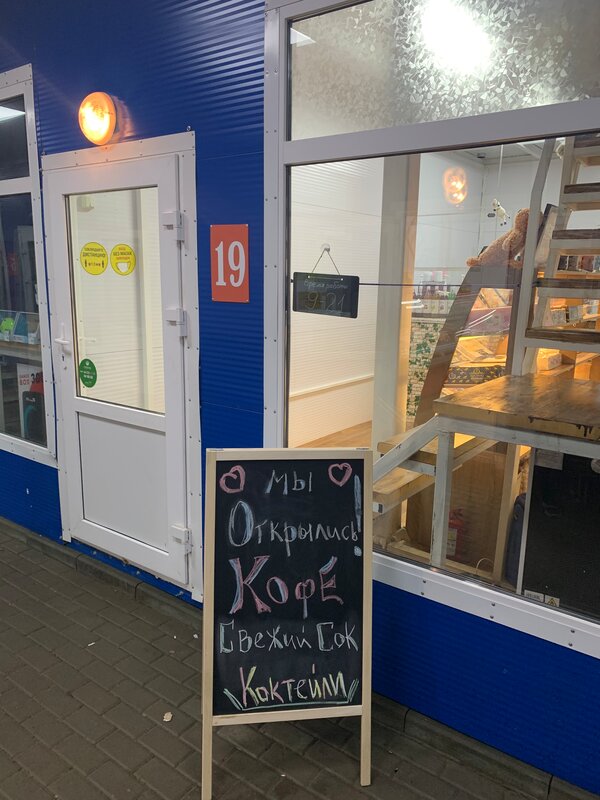 СОБЛЮДАЙТЕ
ДИСТАНЦИЮ
БЕЗ МАСКИ
19
Время работы
9-21
Мы
Открылись!
Кофе
Свежий Сок
Коктейли